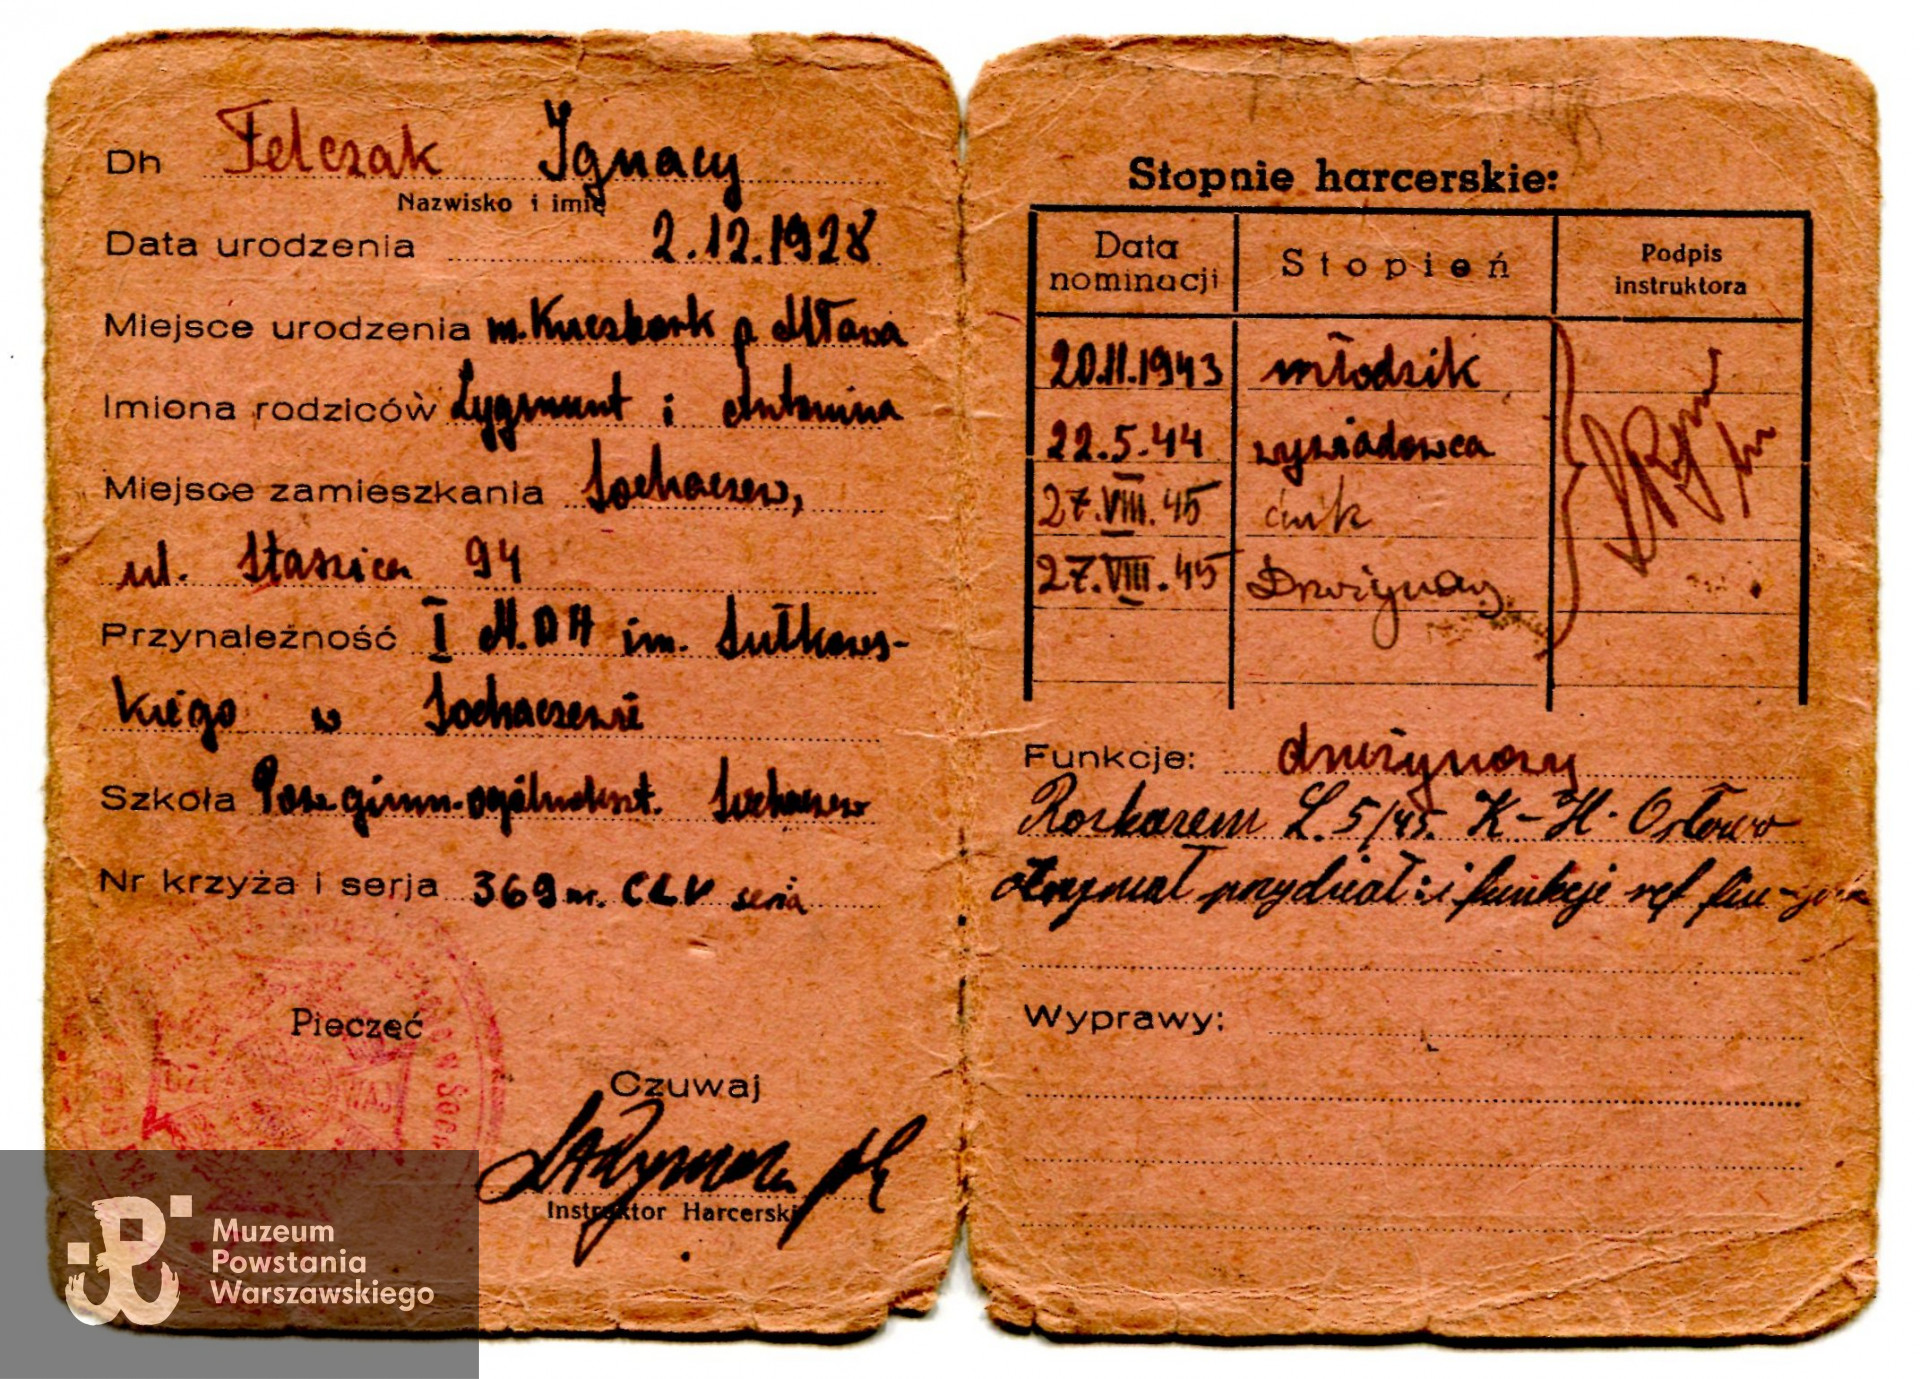 Dh Felczak Ignacy
Nazwisko i imię
Data urodzenia 2.12.1928
Miejsce urodzenia m. Kuczbork p. Mława
Imiona rodziców Zygmunt i Antonina
Miejsce zamieszkania Sochaczew,
ul. Staszica 94
Przynależność I M.D.H im. Sułkows-
kiego w Sochaczewie
Szkoła gimn. ogólnokszt. Sochaczew
Nr krzyża i serja 369 nr. CLV seria
Pieczęć
Czuwaj
Instruktor Harcerski
Stopnie harcerskie:
Data nominacji Stopień Podpis instruktora
20.11.1943 młodzik
22.5.44 wywiadowca
27.VIII.45 ćwik
27.VIII.45 Drużynowy
Funkcje: drużynowy
Rozkazem L. 5/45. K-H. Orłowo
otrzymał przydział: i funkcje ref
Wyprawy:
Muzeum
Powstania
Warszawskiego